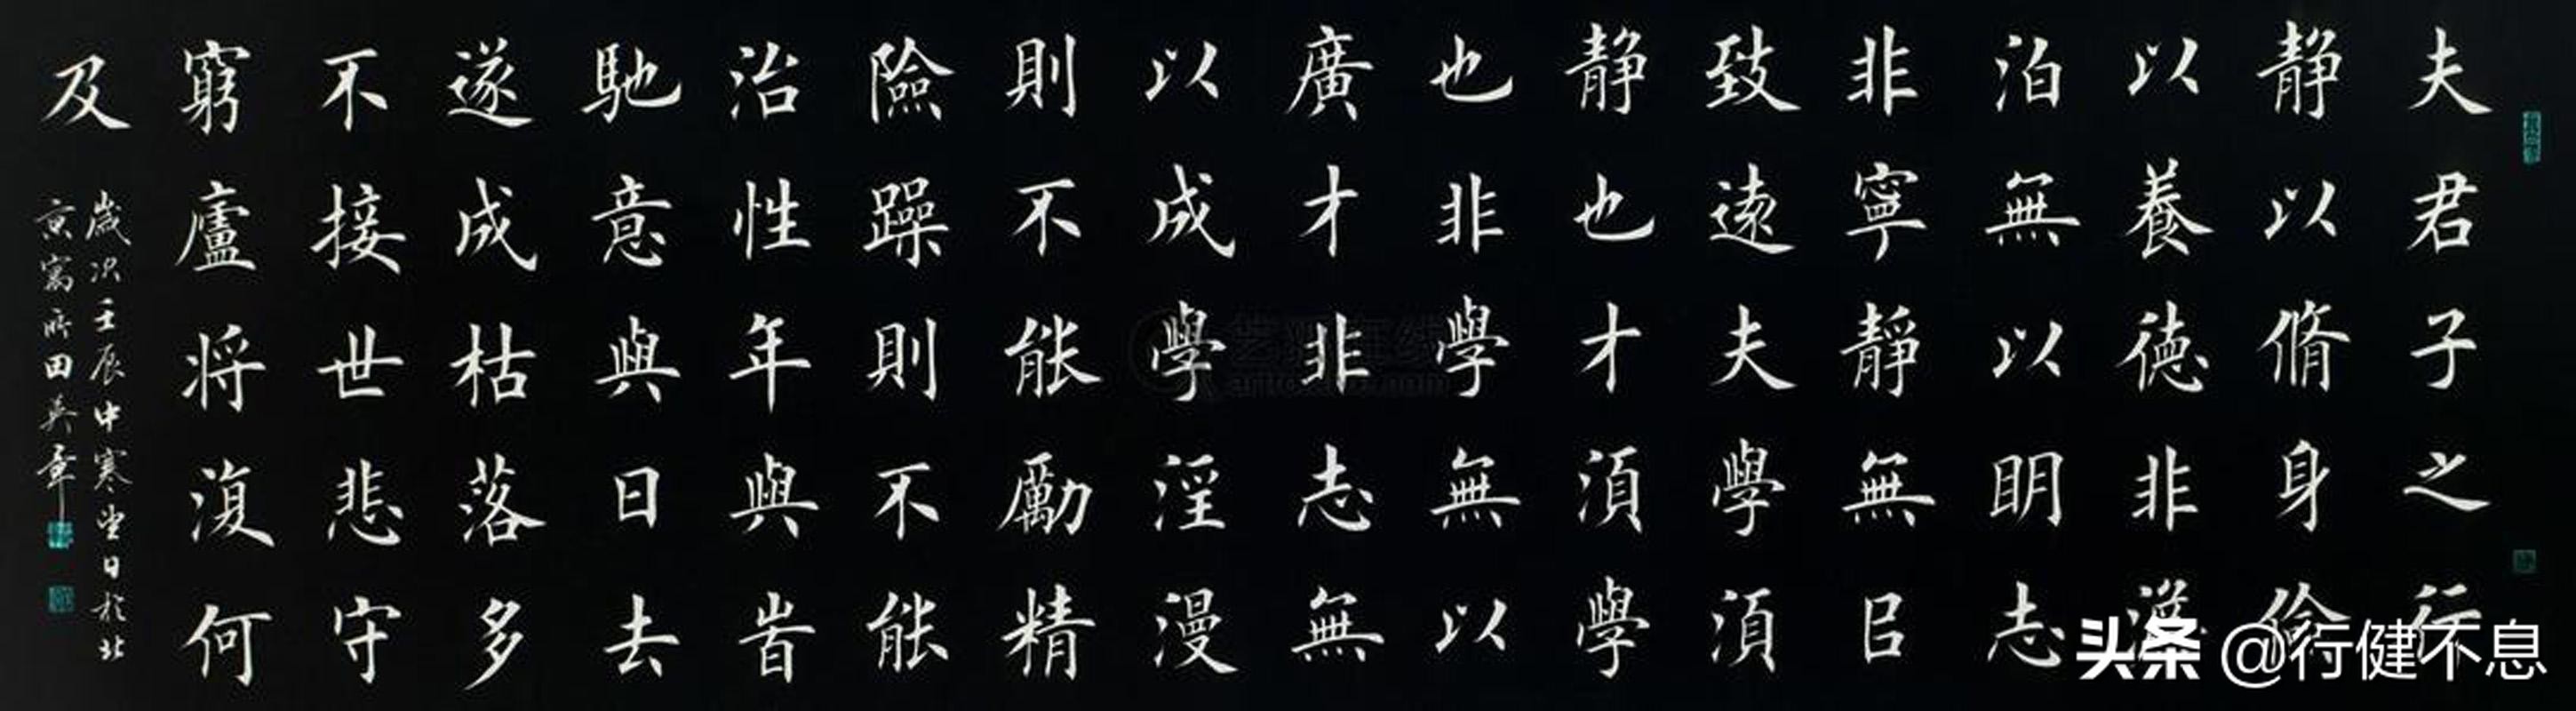 夫君子之行
静以脩身儉
以養德非澹
泊無以明志
非寧靜無㠯
致遠夫學須
静也才須學
也非學無以
廣才非志無
以成學淫漫
則不能勵精
險躁則不能
治性年與旹
馳意與日去
遂成枯落多
不接世悲守
窮廬将復何
及
歲次壬辰中寒望日於北
京寓所田英章
头条 @行健不息